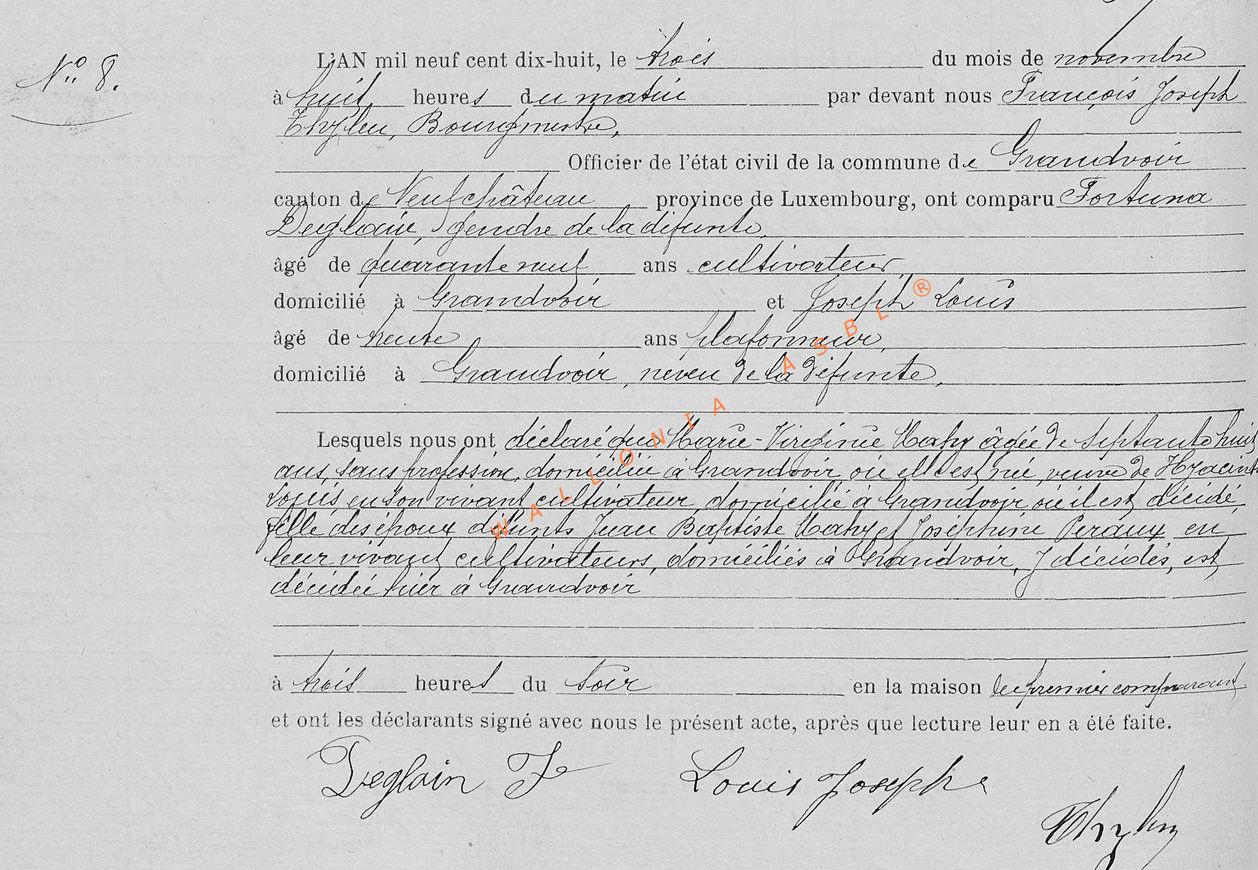 N° 8.
L'AN mil neuf cent dix-huit, le trois du mois de novembre
à huit heures du matin par devant nous François Joseph
Thylen, Bourgmestre,
Officier de l'état civil de la commune de Grandvoir
canton de Neufchâteau province de Luxembourg, ont comparu Fortuna
Deglain, gendre de la défunte,
âgé de quarante neuf ans cultivateur,
domicilié à Grandvoir et Joseph Louis
âgé de trente ans plafonneur,
domicilié à Grandvoir, neveu de la défunte,
Lesquels nous ont déclaré que Marie-Virginie Mahy âgée de septante huit
ans, sans profession, domiciliée à Grandvoir où elle est née, veuve de Hyacinthe
Louis en son vivant cultivateur, domicilié à Grandvoir, où il est décédé,
fille des époux défunts Jean Baptiste Mahy et Joséphine Peraux en
leur vivant cultivateurs, domiciliés à Grandvoir, y décédés, est
décédée hier à Grandvoir
à trois heures du soir en la maison du premier comparant
et ont les déclarants signé avec nous le présent acte, après que lecture leur en a été faite.
Deglain F Louis Joseph
Thylen
WALLONIA ASBL ®